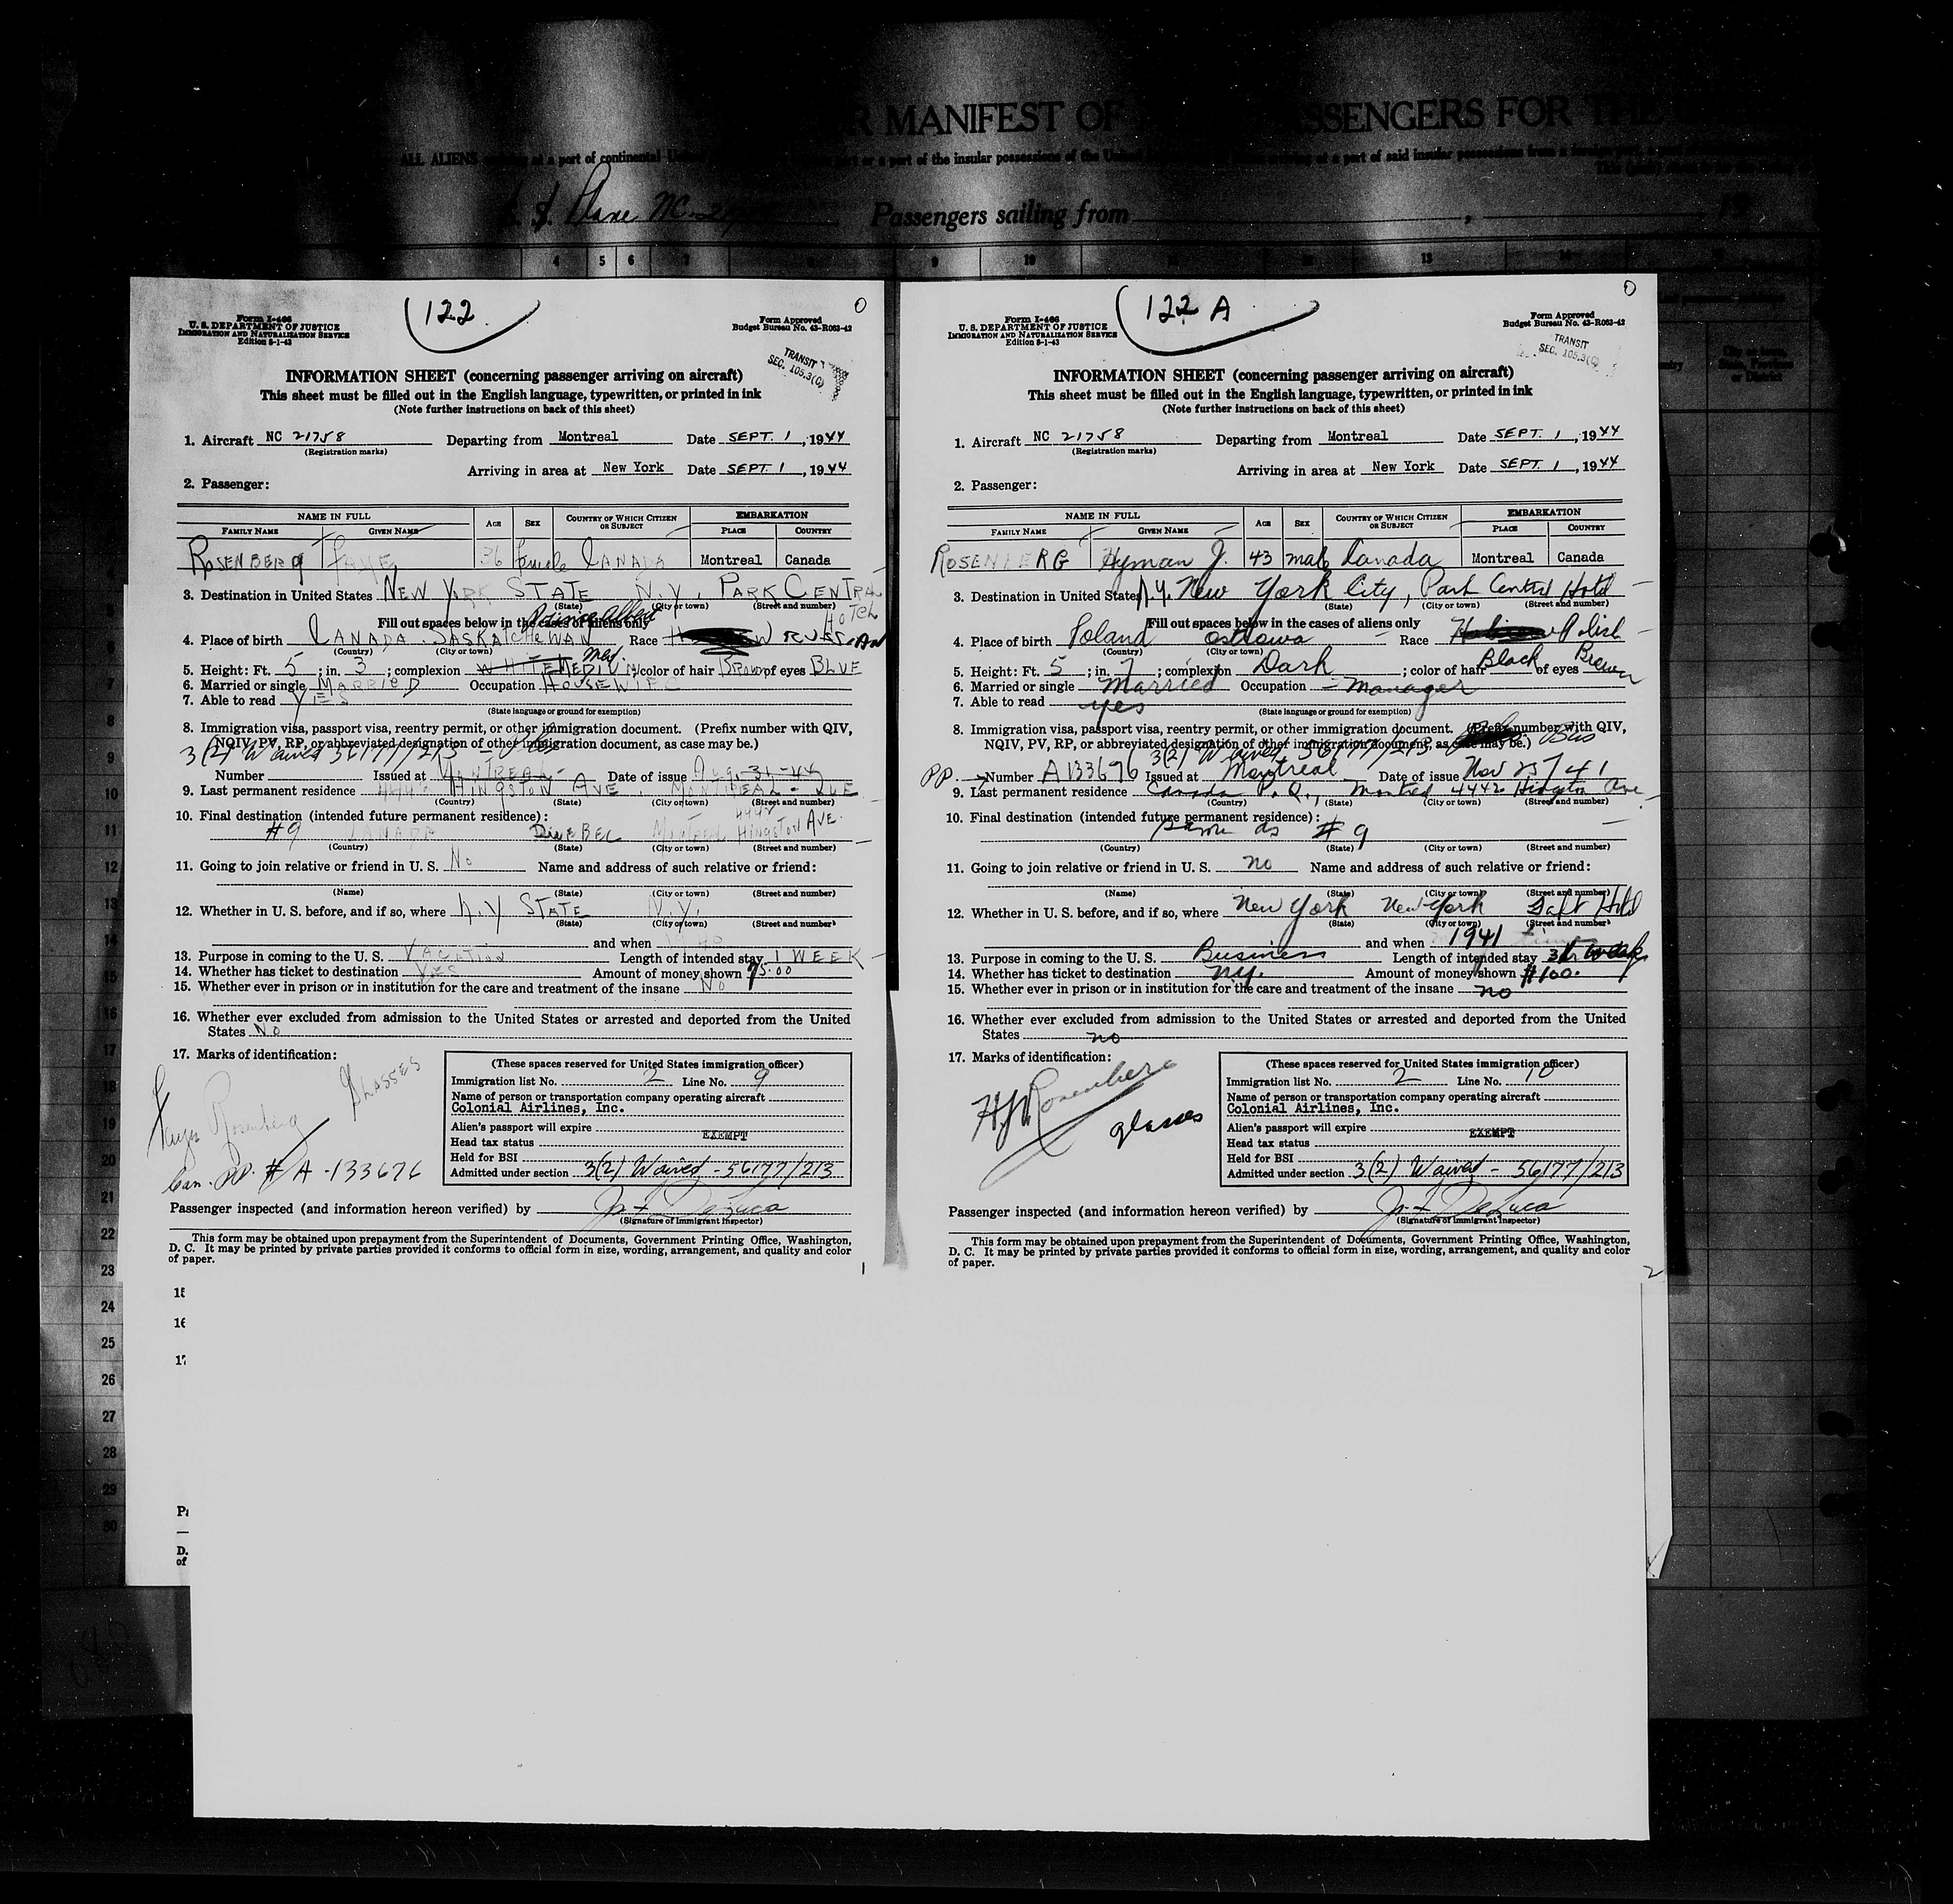 R MANIFEST OF
SSENGERS FOR THE
ALL ALIENS
at a port of continental
or a port of the insular possessions of the United
at a port of said insular possessions from a foreign port
Plane NC-
Passengers sailing from
4 5 6 7 8 9 10 11 12 13 14
122
0
Form I-466
U. S. DEPARTMENT OF JUSTICE
IMMIGRATION AND NATURALIZATION SERVICE
Edition 8-1-43
Form Approved
Budget Bureau No. 43-R063-42
TRANSIT
SEC. 105.3(C)
INFORMATION SHEET (concerning passenger arriving on aircraft)
This sheet must be filled out in the English language, typewritten, or printed in ink
(Note further instructions on back of this sheet)
1. Aircraft NC 21758 Departing from Montreal Date SEPT. 1, 1944
(Registration marks)
Arriving in area at New York Date SEPT. 1, 1944
2. Passenger:
NAME IN FULL AGE SEX COUNTRY OF WHICH CITIZEN OR SUBJECT EMBARKATION
FAMILY NAME GIVEN NAME PLACE COUNTRY
ROSENBERG FAYE 36 female CANADA Montreal Canada
3. Destination in United States NEW YORK STATE N.Y. PARK CENTRAL
(State) (City or town) (Street and number)
HOTEL
Fill out spaces below in the cases of aliens only
4. Place of birth CANADA. SASKATCHEWAN Race RUSSIAN
(Country) (City or town)
5. Height: Ft. 5; in. 3; complexion Med; color of hair BROWN of eyes BLUE
6. Married or single MARRIED Occupation HOUSEWIFE
7. Able to read YES
(State language or ground for exemption)
8. Immigration visa, passport visa, reentry permit, or other immigration document. (Prefix number with QIV,
NQIV, PV, RP, or abbreviated designation of other immigration document, as case may be.)
3(2) Waived 56177/213
Number Issued at MONTREAL Date of issue Aug-31-44
9. Last permanent residence 4442 HINGSTON AVE. MONTREAL - QUE
(Country) (State) (City or town) (Street and number)
10. Final destination (intended future permanent residence): 4442
#9 CANADA QUEBEC MONTREAL HINGSTON AVE.
(Country) (State) (City or town) (Street and number)
11. Going to join relative or friend in U. S. No Name and address of such relative or friend:
(Name) (State) (City or town) (Street and number)
12. Whether in U. S. before, and if so, where N.Y STATE N.Y.
(State) (City or town) (Street and number)
and when 1940
13. Purpose in coming to the U. S. VACATION Length of intended stay 1 WEEK
14. Whether has ticket to destination YES Amount of money shown 75.00
15. Whether ever in prison or in institution for the care and treatment of the insane No
16. Whether ever excluded from admission to the United States or arrested and deported from the United
States No
17. Marks of identification:
GLASSES
Faye Rosenberg
Can. PP. # A-133676
(These spaces reserved for United States immigration officer)
Immigration list No. 2 Line No. 9
Name of person or transportation company operating aircraft
Colonial Airlines, Inc.
Alien's passport will expire
Head tax status EXEMPT
Held for BSI
Admitted under section 3(2) Waived - 56177/213
Passenger inspected (and information hereon verified) by
(Signature of Immigrant Inspector)
This form may be obtained upon prepayment from the Superintendent of Documents, Government Printing Office, Washington,
D. C. It may be printed by private parties provided it conforms to official form in size, wording, arrangement, and quality and color
of paper.
1
122 A
0
Form I-466
U. S. DEPARTMENT OF JUSTICE
IMMIGRATION AND NATURALIZATION SERVICE
Edition 8-1-43
Form Approved
Budget Bureau No. 43-R063-42
TRANSIT
SEC. 105.3(C)
INFORMATION SHEET (concerning passenger arriving on aircraft)
This sheet must be filled out in the English language, typewritten, or printed in ink
(Note further instructions on back of this sheet)
1. Aircraft NC 21758 Departing from Montreal Date SEPT. 1, 1944
(Registration marks)
Arriving in area at New York Date SEPT. 1, 1944
2. Passenger:
NAME IN FULL AGE SEX COUNTRY OF WHICH CITIZEN OR SUBJECT EMBARKATION
FAMILY NAME GIVEN NAME PLACE COUNTRY
ROSENBERG Hyman J. 43 male Canada Montreal Canada
3. Destination in United States N.Y. New York City, Park Central Hotel
(State) (City or town) (Street and number)
Fill out spaces below in the cases of aliens only
4. Place of birth Poland Ostrowa Race Polish
(Country) (City or town)
5. Height: Ft. 5; in. 7; complexion Dark; color of hair Black of eyes Brown
6. Married or single Married Occupation Manager
7. Able to read yes
(State language or ground for exemption)
8. Immigration visa, passport visa, reentry permit, or other immigration document. (Prefix number with QIV,
NQIV, PV, RP, or abbreviated designation of other immigration document, as case may be.) Bus
3(2) Waived 56177/213
PP. Number A133676 Issued at Montreal Date of issue Nov 25 / 41
9. Last permanent residence Canada P. Q., Montreal 4442 Hingston Ave.
(Country) (State) (City or town) (Street and number)
10. Final destination (intended future permanent residence):
same as # 9
(Country) (State) (City or town) (Street and number)
11. Going to join relative or friend in U. S. no Name and address of such relative or friend:
(Name) (State) (City or town) (Street and number)
12. Whether in U. S. before, and if so, where New York New York Taft Hotel
(State) (City or town) (Street and number)
and when 1941
13. Purpose in coming to the U. S. Business Length of intended stay
14. Whether has ticket to destination N.Y. Amount of money shown $100.
15. Whether ever in prison or in institution for the care and treatment of the insane no
16. Whether ever excluded from admission to the United States or arrested and deported from the United
States no
17. Marks of identification:
H J Rosenberg
glasses
(These spaces reserved for United States immigration officer)
Immigration list No. 2 Line No. 10
Name of person or transportation company operating aircraft
Colonial Airlines, Inc.
Alien's passport will expire
Head tax status EXEMPT
Held for BSI
Admitted under section 3(2) Waived - 56177/213
Passenger inspected (and information hereon verified) by
(Signature of Immigrant Inspector)
This form may be obtained upon prepayment from the Superintendent of Documents, Government Printing Office, Washington,
D. C. It may be printed by private parties provided it conforms to official form in size, wording, arrangement, and quality and color
of paper.
2